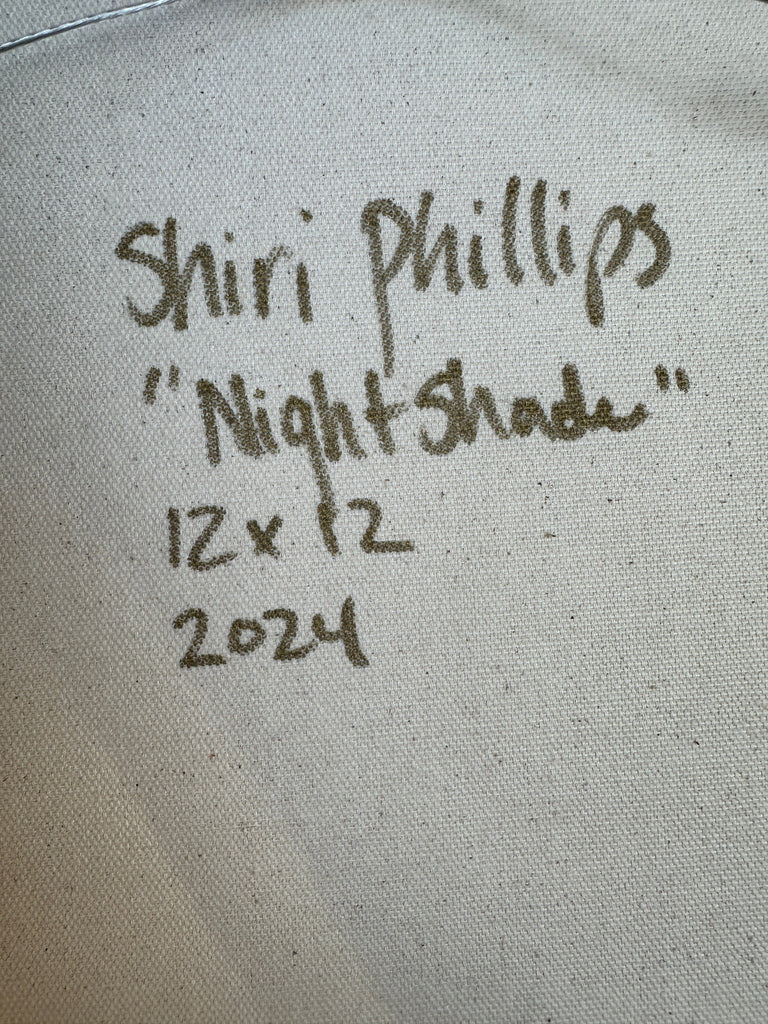 Shiri Phillips
"NightShade"
12 x 12
2024